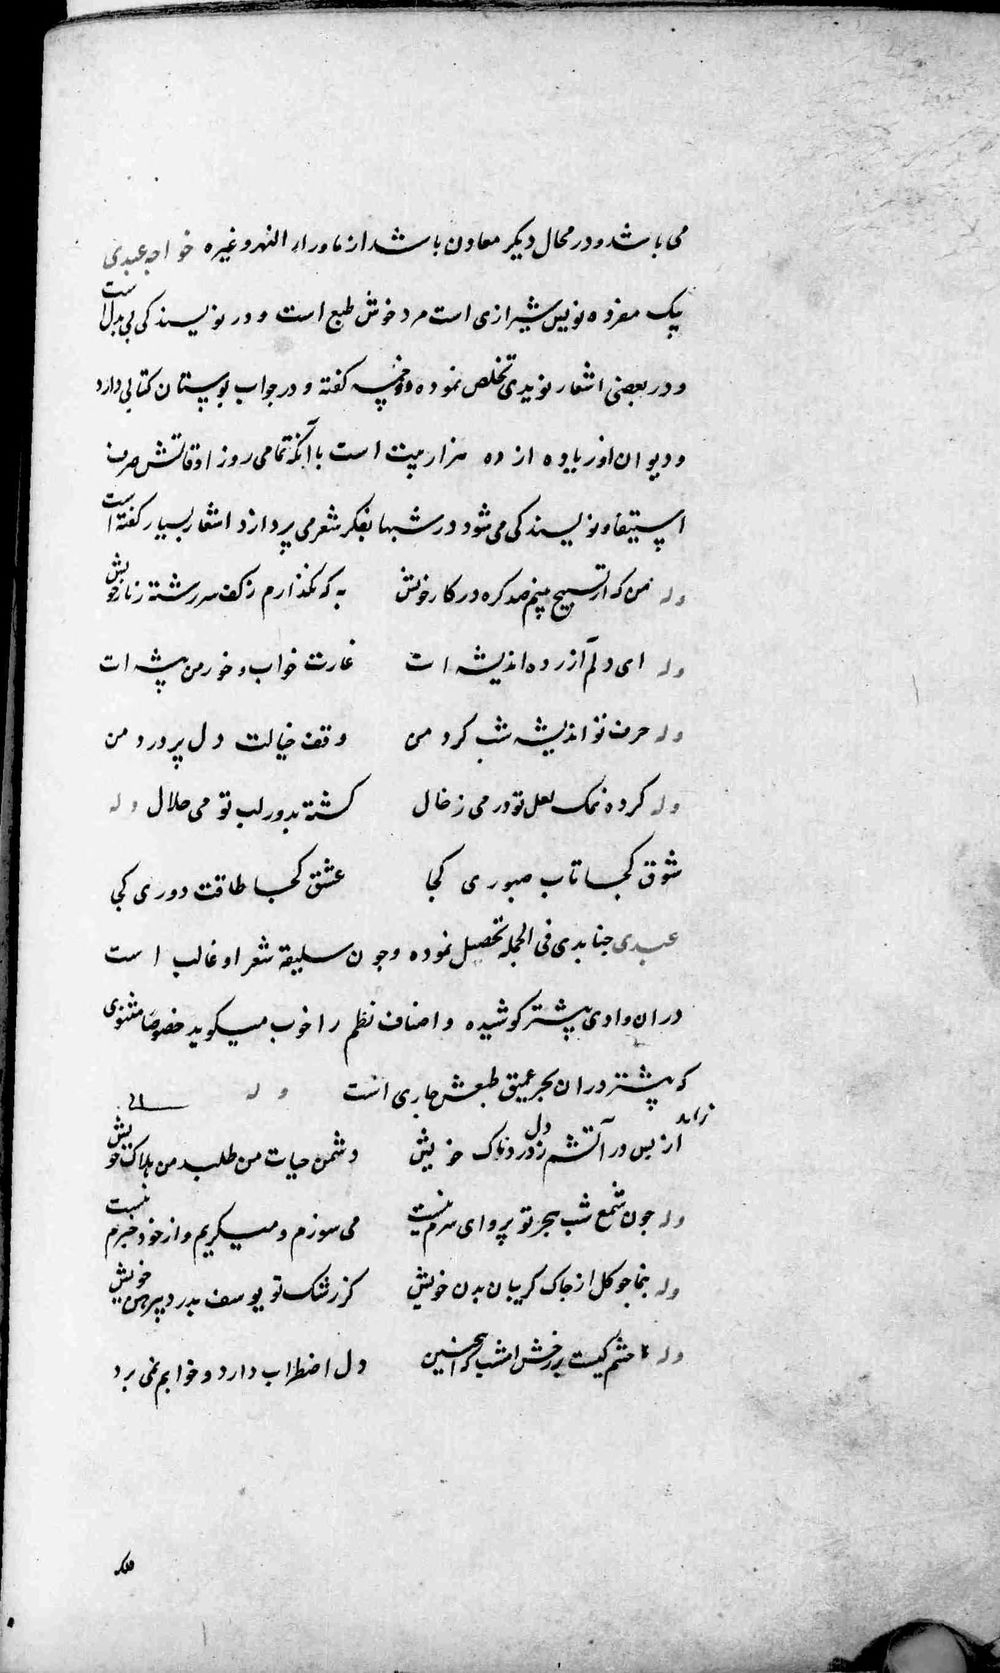 می باشد و در محال دیکر معاون باشد از ماوراء النهر و غیره خواجه عبدی
بیک مفرده نویس شیرازی است مرد خوش طبع است و در نویسندکی بی بدل است
و در بعضی اشعار نویدی تخلص نموده و خمسه کفته و در جواب بوستان کتابی دارد
و دیوان او زیاده از ده هزار بیت است با آنکه تمامی روز اوقاتش صرف
استیفا و نویسندکی می شود در شبها بفکر شعر می پردازد اشعار بسیار کفته است
وله من که از تسبیح بینم صد کره در کار خویش به که نکذارم ز کف سررشته زنار خویش
وله ای دلم آزرده اندیشه ات غارت خواب و خور من پیشه ات
وله حرف تو اندیشه شب کرد من وقف خیالت دل پر درد من
وله کرده نمک لعل تو در می ز خال کشته بدور لب تو می حلال وله
شوق کجا تاب صبوری کجا عشق کجا طاقت دوری کجا
عبدی جنابدی فی الجمله تحصیل نموده و چون سلیقه شعر او غالب است
در ان وادی بیشتر کوشیده و اصناف نظم را خوب میکوید خصوصا مثنوی
که بیشتر در ان بحر عمیق طبعش جاری است وله
از بس در آتشم ز دل دردناک خویش دشمن حیات من طلبد من هلاک خویش
وله چون شمع شب هجر تو پروای سرم نیست می سوزم و میکریم و از خود خبرم نیست
وله بنما چو کل از چاک کریبان بدن خویش کز رشک تو یوسف بدرد پیرهن خویش
وله چشم کیست بر رخش امشب که اینچنین دل اضطراب دارد و خوابم نمی برد